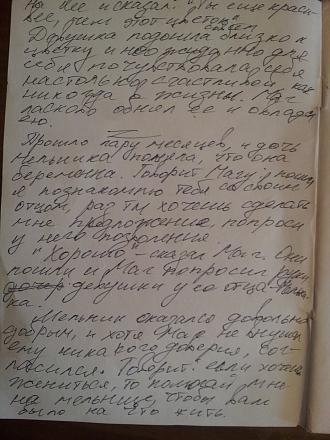 на нее и сказал: "Ты еще краси-
вее, чем этот цветок"
Девушка подошла совсем близко к
цветку и неожиданно для
себя почувствовала себя
настолько счастливой, как
никогда в жизни. Маг
ласково обнял ее и овладел
ею.
Прошло пару месяцев, и дочь
мельника поняла, что она
беременна. Говорит Магу: пошли,
я познакомлю тебя со своим
отцом, раз ты хочешь сделать
мне предложение, попроси
у него позволения.
"Хорошо" - сказал Маг. Они
пошли и Маг попросил руки
девушки у со отца-Мельни-
ка.
Мельник оказался довольно
добрым, и хотя Маг не внушал
ему никакого доверия, сог-
ласился. Говорит: если хочешь
жениться, то помогай мне
на мельнице, чтобы вам
было на что жить.